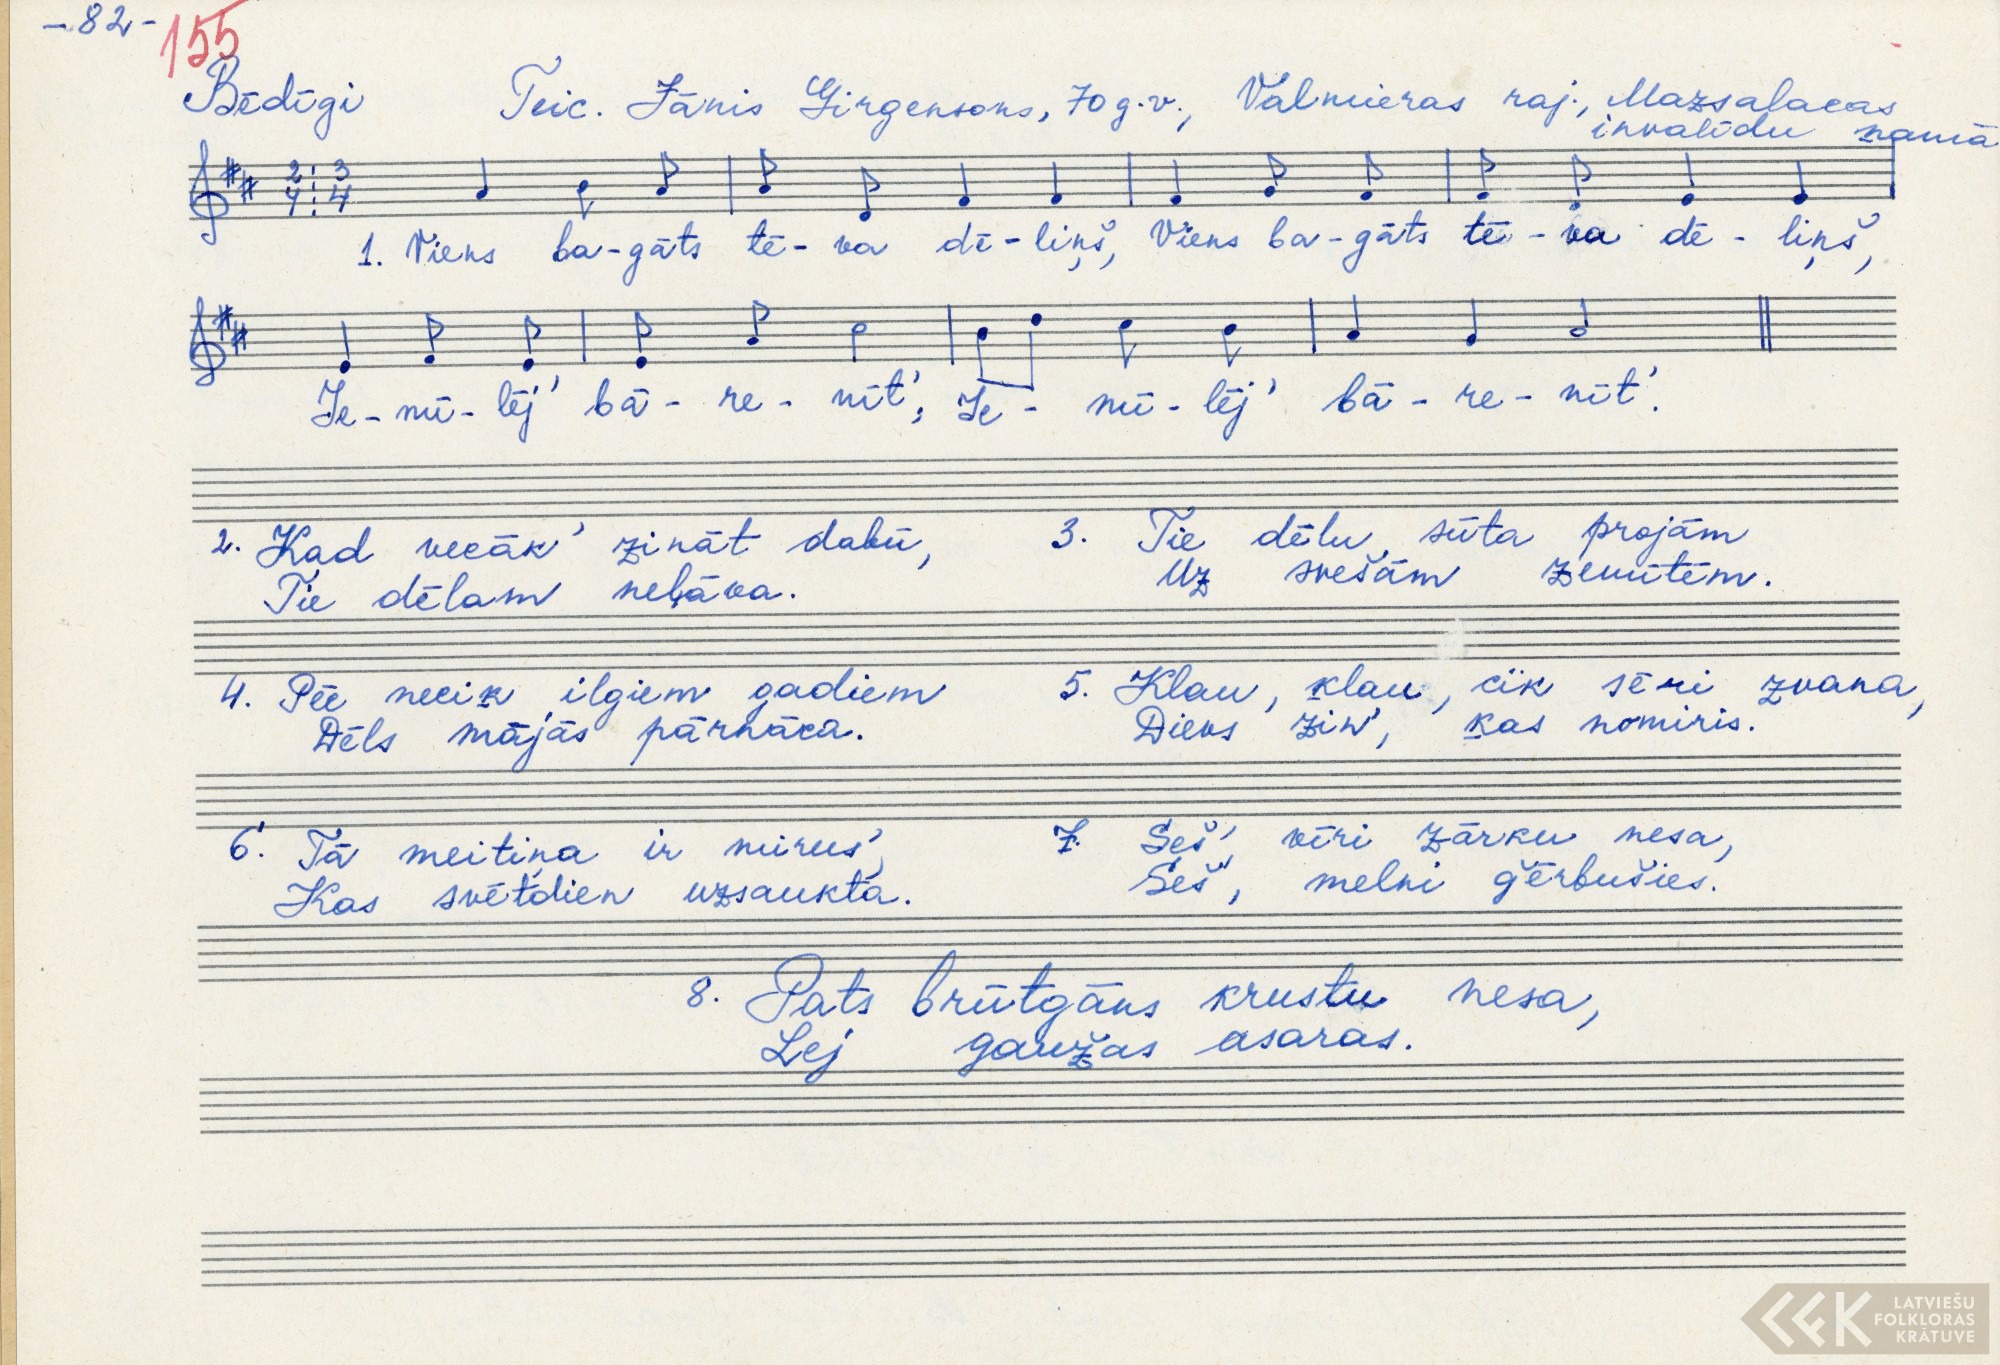 -82-
155
Bēdīgi Teic. Jānis Girgensons, 70 g.v., Valmieras raj., Mazsalacas
invalīdu namā
2/4 3/4
1. Viens ba-gāts tē-va dē-liņš, Viens ba-gāts tē-va dē-liņš,
Ie-mī-lēj' bā-re-nīt', Ie-mī-lēj' bā-re-nīt'.
2. Kad vecāk' zināt dabū,
Tie dēlam neļāva.
3. Tie dēlu sūta projām
Uz svešām zemītēm.
4. Pēc necik ilgiem gadiem
Dēls mājās pārnāca.
5. Klau, klau, cik sēri zvana,
Dievs zin', kas nomiris.
6. Tā meitiņa ir mirus',
Kas svētdien uzsaukta.
7. Seš' vīri zārku nesa,
Seš', melni ģērbušies.
8. Pats brūtgāns krustu nesa,
Lej gaužas asaras.
LATVIEŠU
FOLKLORAS
KRĀTUVE